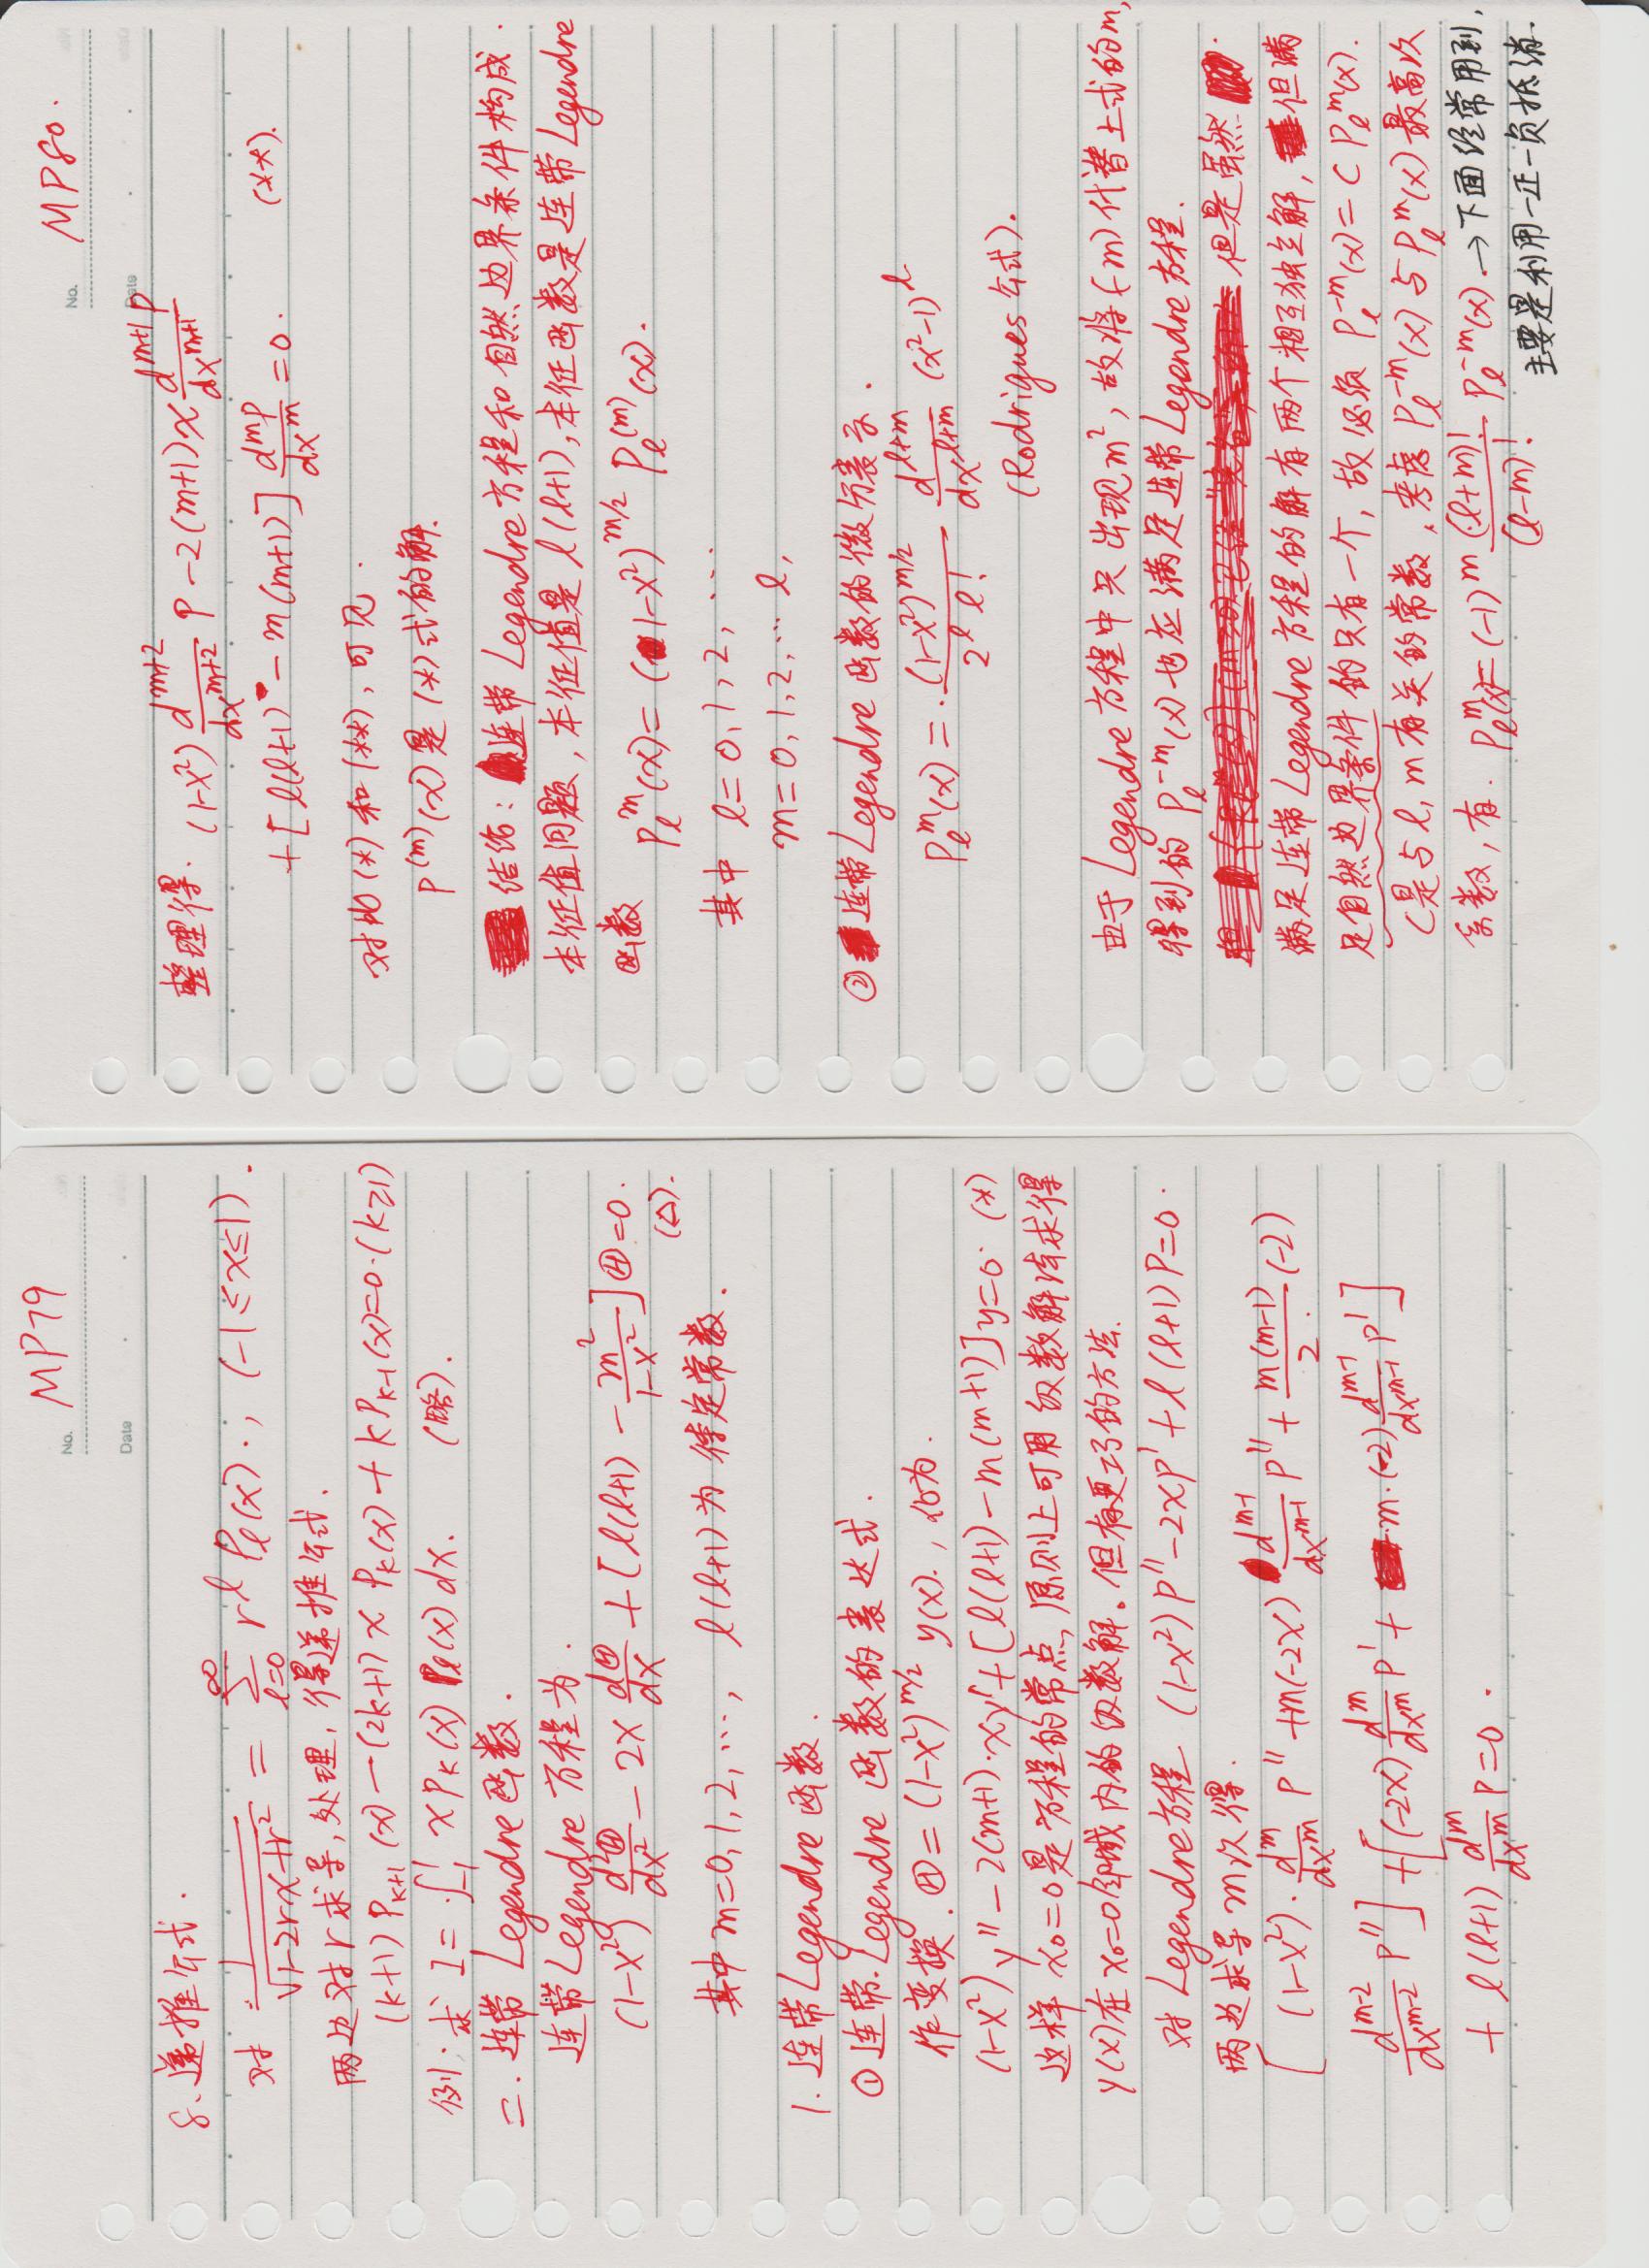 No. MP79
Date
8. 递推公式.
对 \frac{1}{\sqrt{1-2rx+r^2}} = \sum_{l=0}^{\infty} r^l P_l(x)., (-1≤x≤1).
两边对r求导,处理,得递推公式.
(k+1) P_{k+1}(x) - (2k+1) x P_k(x) + k P_{k-1}(x)=0. (k≥1)
例:求 I = ∫_{-1}^{1} x P_k(x) P_l(x) dx. (略).
二. 连带 Legendre 函数.
连带Legendre 方程为.
(1-x^2) \frac{d^2Θ}{dx^2} - 2x \frac{dΘ}{dx} + [l(l+1) - \frac{m^2}{1-x^2}] Θ=0.
(△).
其中 m=0,1,2,…, l(l+1)为 待定常数.
1. 连带Legendre 函数.
① 连带.Legendre 函数的表达式.
作变换. Θ = (1-x^2)^{m/2} y(x)., 化为.
(1-x^2) y'' - 2(m+1)·xy' + [l(l+1) - m(m+1)] y=0. (*)
这样 x_0=0是方程的常点,原则上可用级数解法求得
y(x)在x_0=0邻域内的级数解。但有更巧的方法.
对 Legendre方程 (1-x^2) P'' - 2xP' + l(l+1) P=0.
两边求导m次得.
[ (1-x^2)· \frac{d^m}{dx^m} P'' + m(-2x) \frac{d^{m-1}}{dx^{m-1}} P'' + \frac{m(m-1)}{2} (-2)
\frac{d^{m-2}}{dx^{m-2}} P''] + [(-2x) \frac{d^m}{dx^m} P' + m·(-2) \frac{d^{m-1}}{dx^{m-1}} P']
+ l(l+1) \frac{d^m}{dx^m} P=0.
No. MP80.
Date
整理得. (1-x^2) \frac{d^{m+2}}{dx^{m+2}} P - 2(m+1) x \frac{d^{m+1}P}{dx^{m+1}}
+ [l(l+1) - m(m+1)] \frac{d^mP}{dx^m} = 0. (**).
对比(*)和(**),可见.
P^{(m)}(x)是(*)式的解.
结论:连带 Legendre 方程和自然边界条件构成.
本征值问题,本征值是 l(l+1),本征函数是连带Legendre
函数 P_l^m(x) = (1-x^2)^{m/2} P_l^{(m)}(x).
其中 l=0,1,2,…
m=0,1,2,… l,
② 连带Legendre 函数的微分表示.
P_l^m(x) = \frac{(1-x^2)^{m/2}}{2^l l!} \frac{d^{l+m}}{dx^{l+m}} (x^2-1)^l
(Rodrigues 公式).
由于Legendre方程中只出现m^2,故将(-m)代替上式的m,
得到的 P_l^{-m}(x)也应满足连带Legendre方程.
但是虽然
满足连带Legendre方程的解有两个相互独立解,但满
足自然边界条件的只有一个,故必须 P_l^{-m}(x) = C P_l^m(x).
C是与l,m有关的常数,考虑P_l^{-m}(x)与P_l^m(x)最高次
系数,有. P_l^m(x) = (-1)^m \frac{(l+m)!}{(l-m)!} P_l^{-m}(x) →下面经常用到,
主要是利用一正一负抵消.